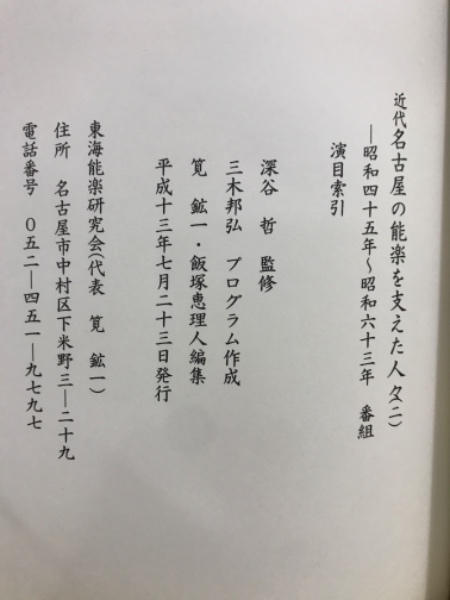 近代名古屋の能楽を支えた人々(二)
―昭和四十五年～昭和六十三年　番組
演目索引
深谷　哲　監修
三木邦弘　プログラム作成
筧　鉱一・飯塚恵理人編集
平成十三年七月二十三日発行
東海能楽研究会(代表　筧　鉱一)
住所　名古屋市中村区下米野三―二十九
電話番号　〇五二―四五一―九七九七